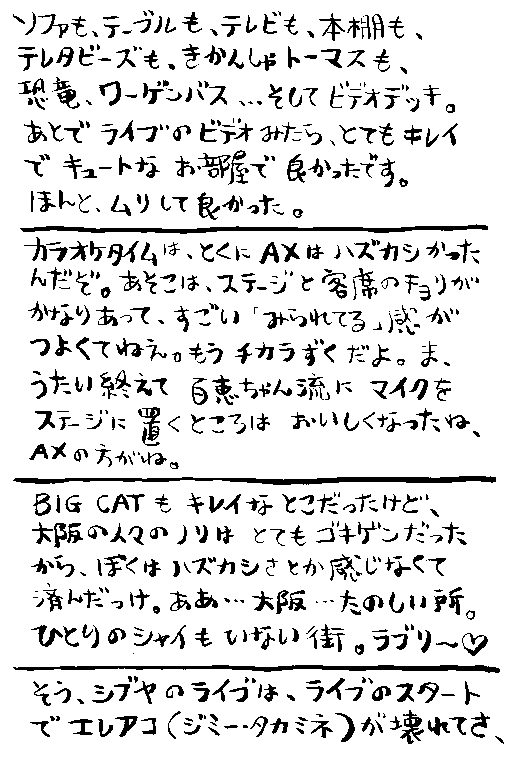 ソファも、テーブルも、テレビも、本棚も、
テレタビーズも、きかんしゃトーマスも、
恐竜、ワーゲンバス…そしてビデオデッキ。
あとでライブのビデオみたら、とてもキレイ
でキュートなお部屋で良かったです。
ほんと、ムリして良かった。
カラオケタイムは、とくにAXはハズカシかった
んだぞ。あそこは、ステージと客席のキョリが
かなりあって、すごい「みられてる」感が
つよくてねえ。もうチカラずくだよ。ま、
うたい終えて百恵ちゃん流にマイクを
ステージに置くところはおいしくなったね、
AXの方がね。
BIG CATもキレイなとこだったけど、
大阪の人々のノリはとてもゴキゲンだった
から、ぼくはハズカシさとか感じなくて
済んだっけ。ああ…大阪…たのしい所。
ひとりのシャイもいない街。ラブリ〜♡
そう、シブヤのライブは、ライブのスタート
でエレアコ(ジミー・タカミネ)が壊れてさ、